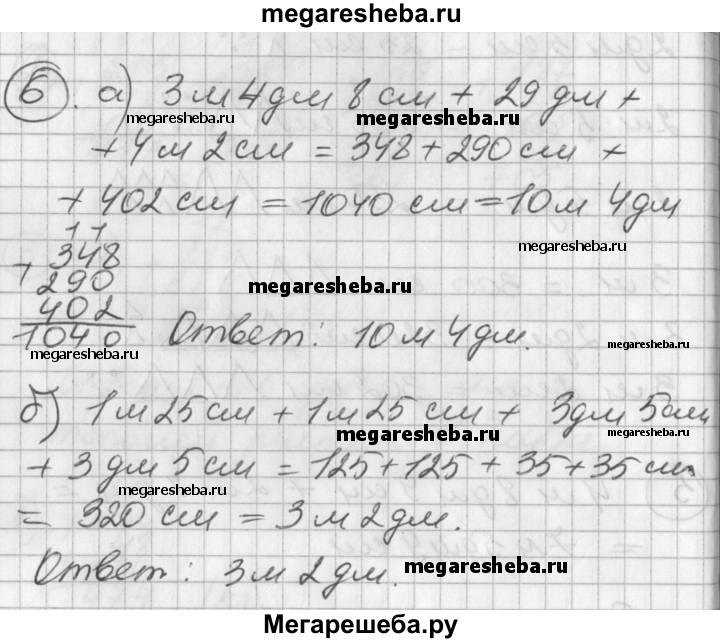 megaresheba.ru
6. а) 3 м 4 дм 8 см + 29 дм +
megaresheba.ru megaresheba.ru
+ 4 м 2 см = 348 + 290 см +
+ 402 см = 1040 см = 10 м 4 дм
megaresheba.ru
11
348
+ 290
megaresheba.ru
402
1040 Ответ: 10 м 4 дм.
megaresheba.ru megaresheba.ru
б) 1 м 25 см + 1 м 25 см + 3 дм 5 см
megaresheba.ru megaresheba.ru
+ 3 дм 5 см = 125 + 125 + 35 + 35 см
megaresheba.ru
= 320 см = 3 м 2 дм.
Ответ: 3 м 2 дм.
megaresheba.ru
Мегарешеба.ру